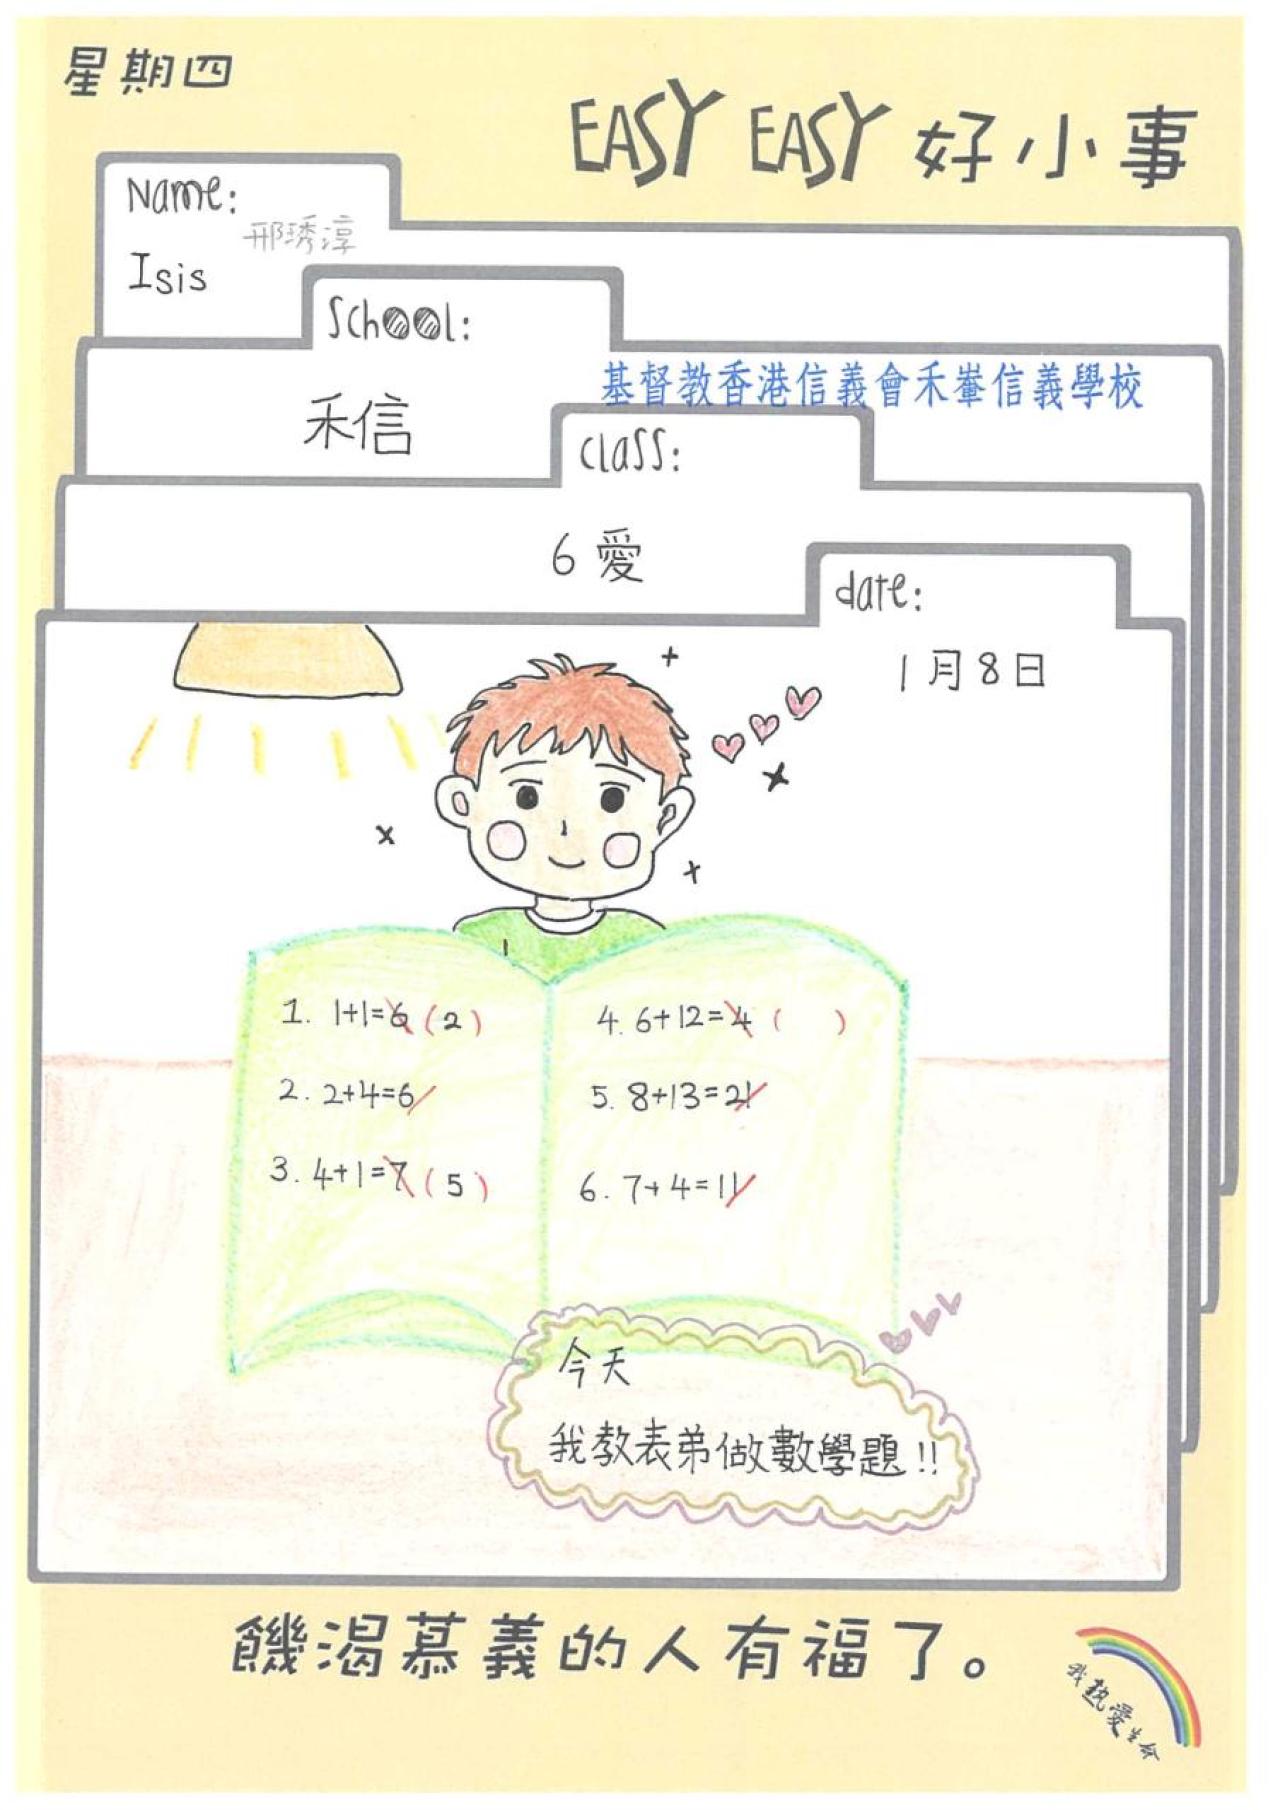 星期四
EASY EASY 好小事
Name:
邢琇淳
Isis
School:
基督教香港信義會禾輋信義學校
禾信
class:
6愛
date:
1月8日
1. 1+1=6 (2)
2. 2+4=6
3. 4+1=7 (5)
4. 6+12=4 (  )
5. 8+13=21
6. 7+4=11
今天
我教表弟做數學題!!
饑渴慕義的人有福了。
我熱愛生命